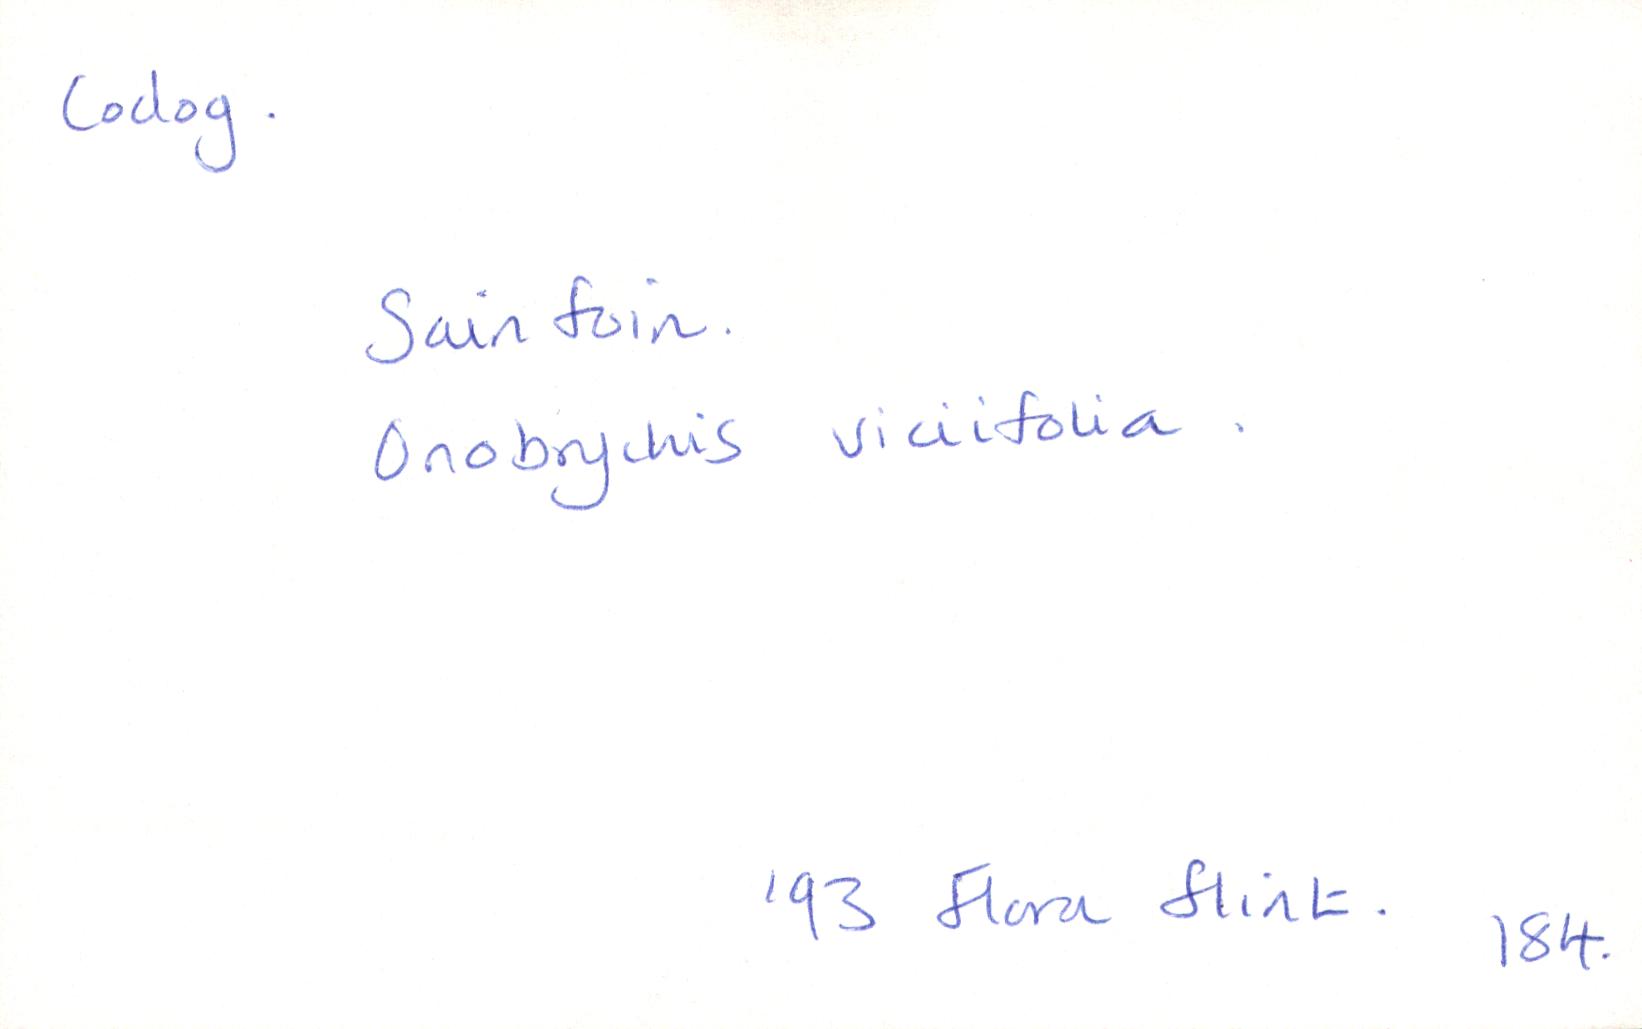 Codog.
Sainfoin.
Onobrychis viciifolia.
'93 Flora Flint.
184.